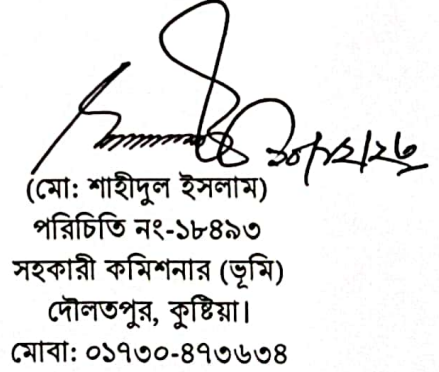 (মো: শাহীদুল ইসলাম)
পরিচিতি নং-১৮৪৯৩
সহকারী কমিশনার (ভূমি)
দৌলতপুর, কুষ্টিয়া।
মোবা: ০১৭৩০-৪৭৩৬৩৪